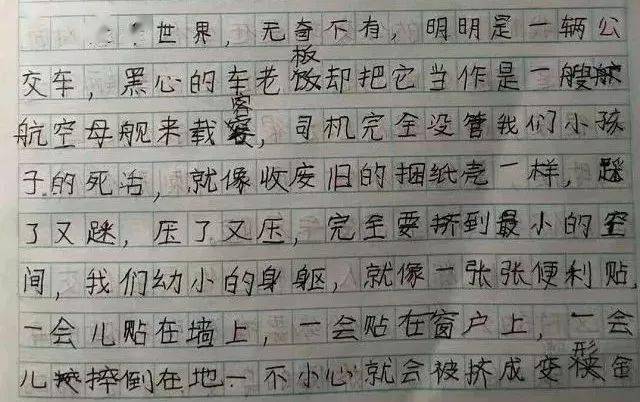 世界，无奇不有，明明是一辆公
交车，黑心的车老板却把它当作是一艘
航空母舰来载客，司机完全没管我们小孩
子的死活，就像收废旧的捆纸壳一样，踩
了又踩，压了又压，完全要挤到最小的空
间，我们幼小的身躯，就像一张张便利贴，
一会儿贴在墙上，一会贴在窗户上，一会
儿摔倒在地一不小心就会被挤成变形金